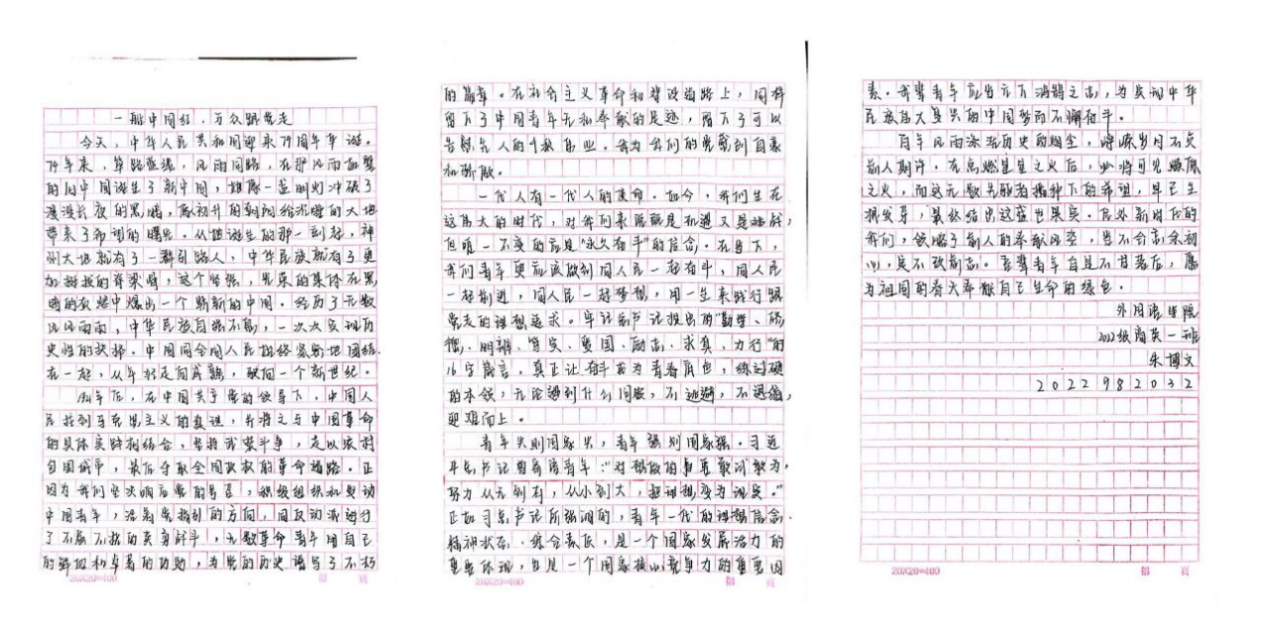 一船中国红,万众跟党走
今天,中华人民共和国迎来79周年华诞。
79年来,筚路蓝缕,风雨同路,在那风雨如磐
的旧中国诞生了新中国,她像一盏明灯冲破了
漫漫长夜的黑暗,像初升的朝阳给光明的大地
带来了希望的曙光。从她诞生的那一刻起,神
州大地就有了一群引路人,中华民族就有了更
加挺拔的脊梁骨,这个坚强,先荣的集体在黑
暗的夜空中爆出一个崭新的中国。经历了无数
风风雨雨,中华民族自强不息,一次次实现历
史性的抉择。中国同全国人民始终紧密地团结
在一起,从年轻走向成熟,跃向一个新世纪。
年后,在中国共产党的领导下,中国人
民找到马克思主义的真理,并将之与中国革命
的具体实践相结合,坚持武装斗争,走以农村
包围城市,最后夺取全国政权的革命道路。正
因为我们坚决响应党的号召,积极组织和发动
中国青年,沿着党指引的方向,同反动派进行
了不屈不挠的英勇斗争,无数革命青年用自己
的鲜血和卓著的功勋,为党的历史谱写了不朽
的篇章。在社会主义革命和建设道路上,同样
留下了中国青年无私奉献的足迹,留下了可以
告慰先人的千秋伟业,我为我们的党感到自豪
和骄傲。
一代人有一代人的使命。如今,我们生在
这伟大的时代,对我们来说既是机遇又是挑战,
但唯一不变的应是“永久奋斗”的信念。在当下,
我们青年更应该做到同人民一起奋斗,同人民
一起前进,同人民一起梦想,用一生来践行跟
党走的理想追求。牢记总书记提出的“勤学、修
德、明辨、笃实、爱国、励志、求真、力行”的
16字箴言,真正让奋斗成为青春底色,练过硬
的本领,无论遇到什么困难,不逃避,不退缩,
迎难而上。
青年兴则国家兴,青年强则国家强。习近
平总书记曾寄语青年:“对想做的事要敢试敢为,
努力从无到有,从小到大,把理想变为现实。”
正如习总书记所强调的,青年一代的理想信念、
精神状态、综合素质,是一个国家发展活力的
重要体现,也是一个国家核心竞争力的重要因
素。我辈青年应当立下鸿鹄之志,为实现中华
民族伟大复兴的中国梦而不懈奋斗。
百年风雨涤荡历史的烟尘,峥嵘岁月不负
前人期许。在点燃星星之火后,必将可见燎原
之火,而这无数先驱者播种下的希望,早已生
根发芽,最终结出这盛世果实。身处新时代的
我们,领略了前人的奉献风姿,岂不会忘余初
心,定不改前志。吾辈青年自是不甘落后,愿
为祖国的春天奉献自己生命的绿色。
外国语学院
2022级商英一班
朱博文
2022982032
20X20=400
第 页
20X20=400
第 页
20X20=400
第 页